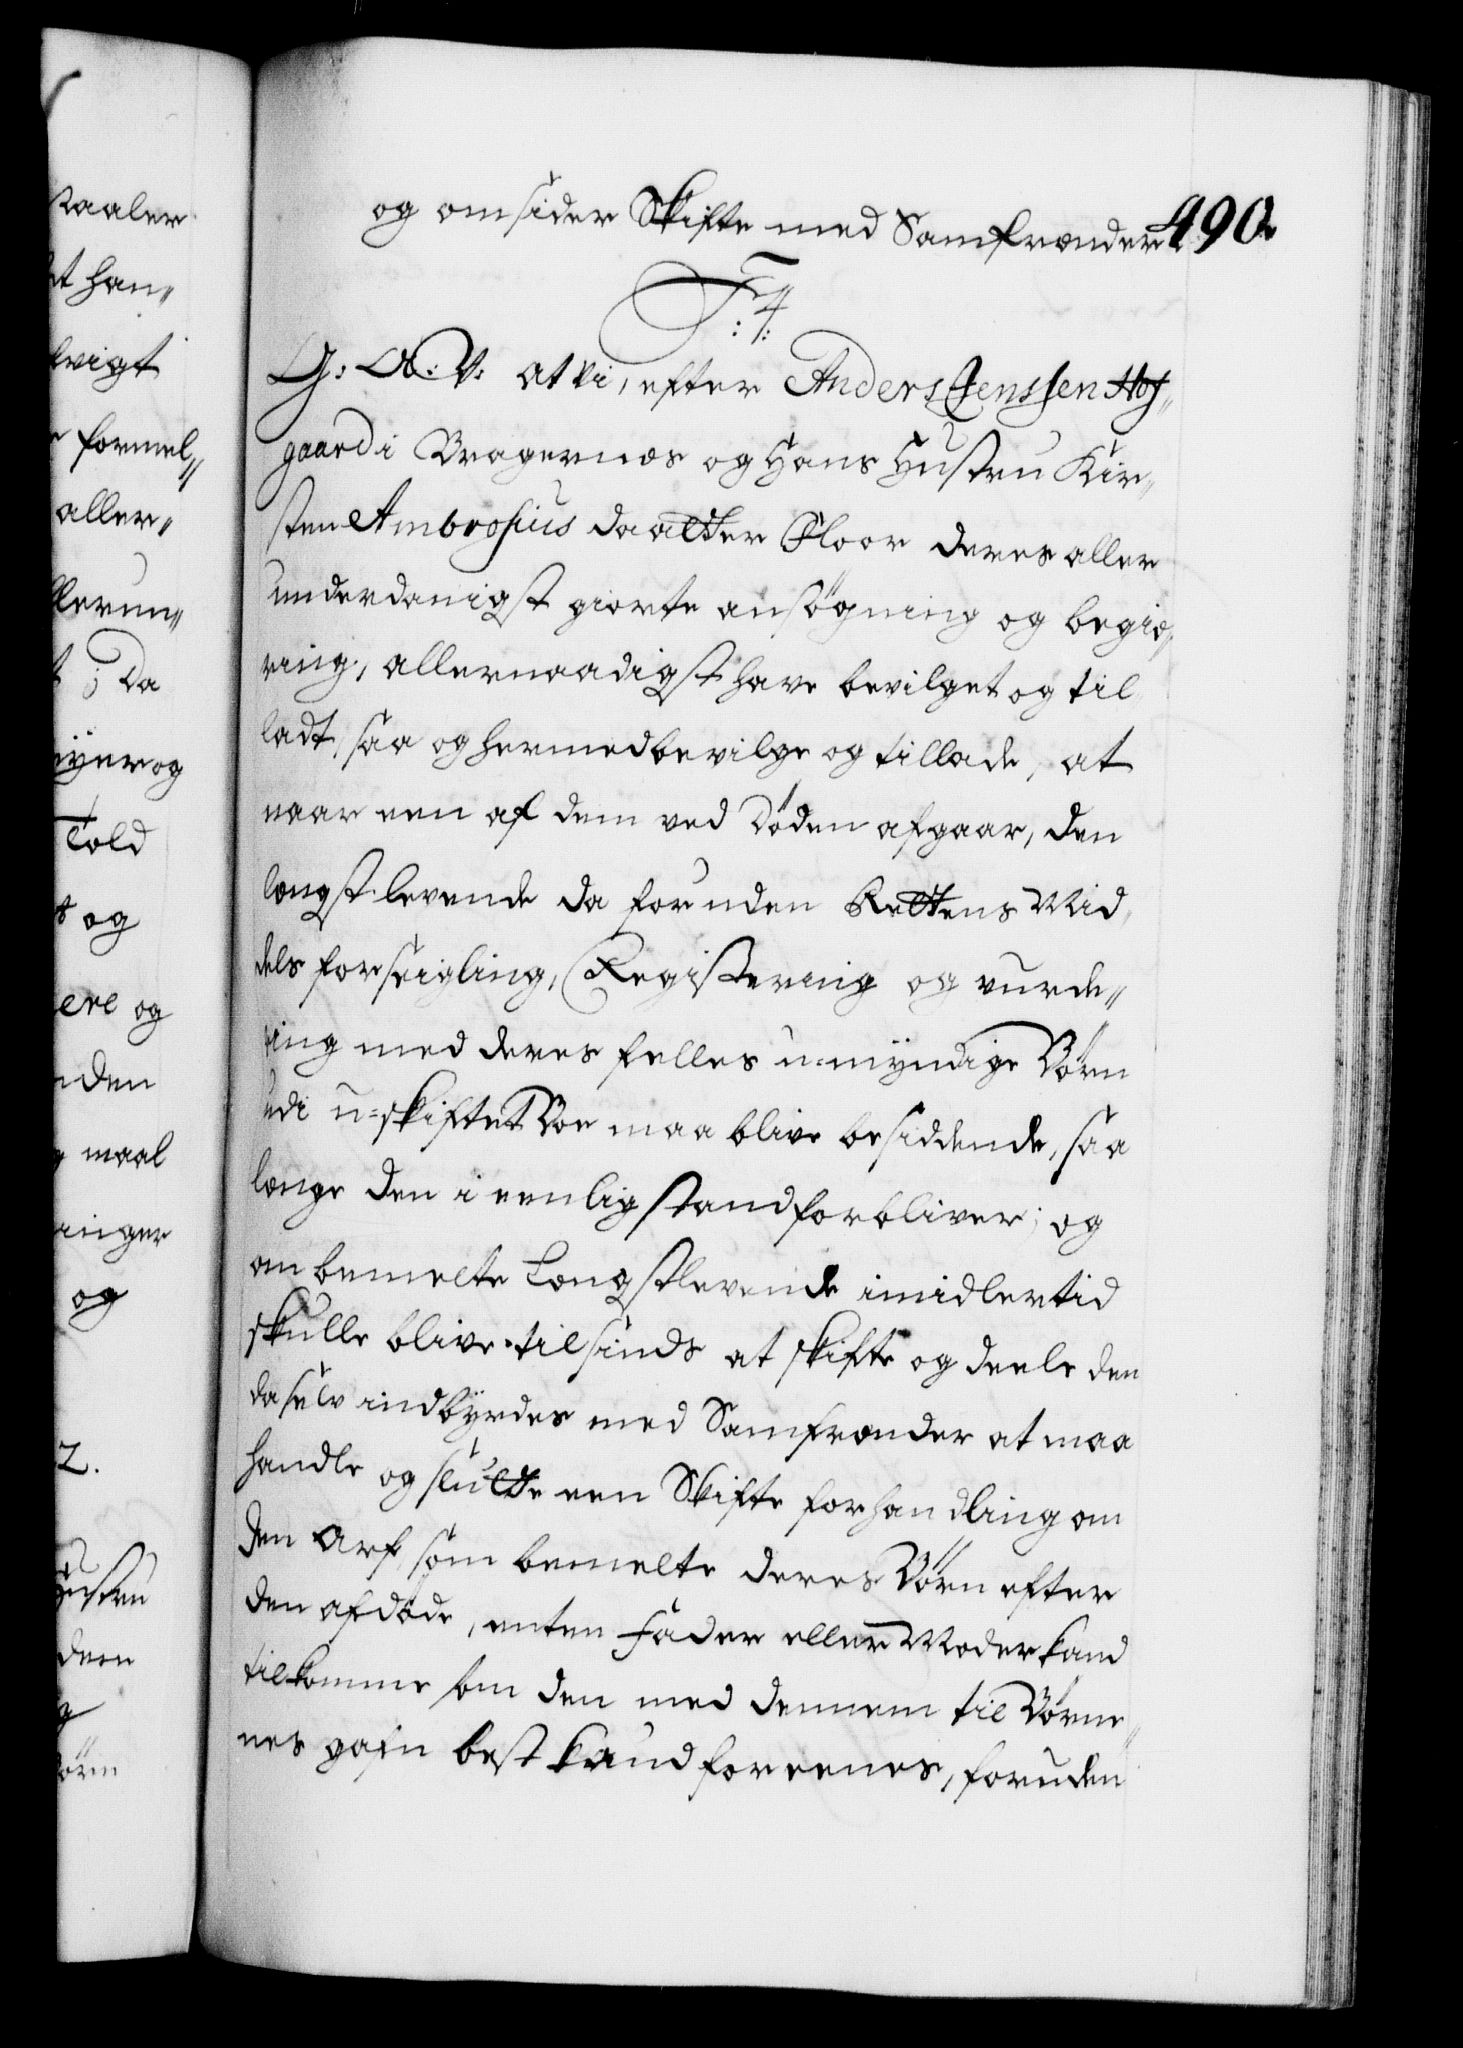 og omsider Skifte med Samfrænder 490
F: 4
G: A: V: at vi, efter Anders Jenssen Hof„
gaard i Bragernæs og Hans Hustru Kir„
sten Ambrosius daatter Floor deres aller
underdanigst giorte ansøgning og begiæ„
ring, allernaadigst have bevilget og til„
ladt, saa og hermed bevilge og tillade, at
naar een af dem ved Døden afgaar, den
længst levende da foruden Rettens Mid„
dels forseigling, Registering og vurde„
ring med deres felles u=myndige Børn
udi u=skiftet Boe maa blive besiddende, saa
længe den i eenlig stand forbliver; og
om bemelte Længstlevende imidlertid
skulle blive til sinds at skifte og deele den
da selv indbyrdes med Samfrænder at maa
handle og slutte een Skifte forhandling om
den Arf, som bemelte deres Børn efter
den afdøde, enten Fader eller Moder kand
tilkomme som den med dennem til Børne„
nes gafn best kand foreenes, foruden
staaler
et han„
lvigt
formel„
aller„
llerun„
; Da
og
Told
og
ere og
nden
maal
inger
og
2.
Hustru
dem
Børn